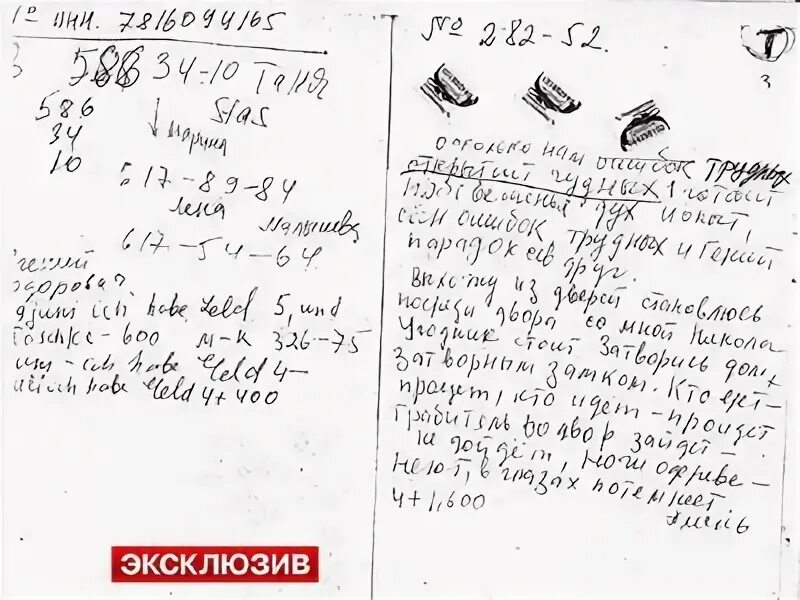 ИНН. 7816094165
586 34-10 Таня
586
34
10
Stas
Марина
617-89-84
Лена
Малышева
617-54-64
гений
здоровая
djuni ich habe Geld 5, und
Taschke-600 м-к 326-75
ich habe Geld 4-
ich habe Geld 4+400
№ 282-52.
Т
3
О сколько нам ошибок трудных
открытий чудных готовит
дух и опыт,
сын ошибок трудных и Гений
парадоксов друг.
Выхожу из дверей становлюсь
посреди двора со мной Никола
Угодник стоит Затворись дом
Затворным замком. Кто едет-
проедет, кто идет-пройдет
Грабитель во двор зайдет-
не дойдёт, ноги офиве-
неют, в глазах потемнеет.
4+1,600
Аминь
ЭКСКЛЮЗИВ